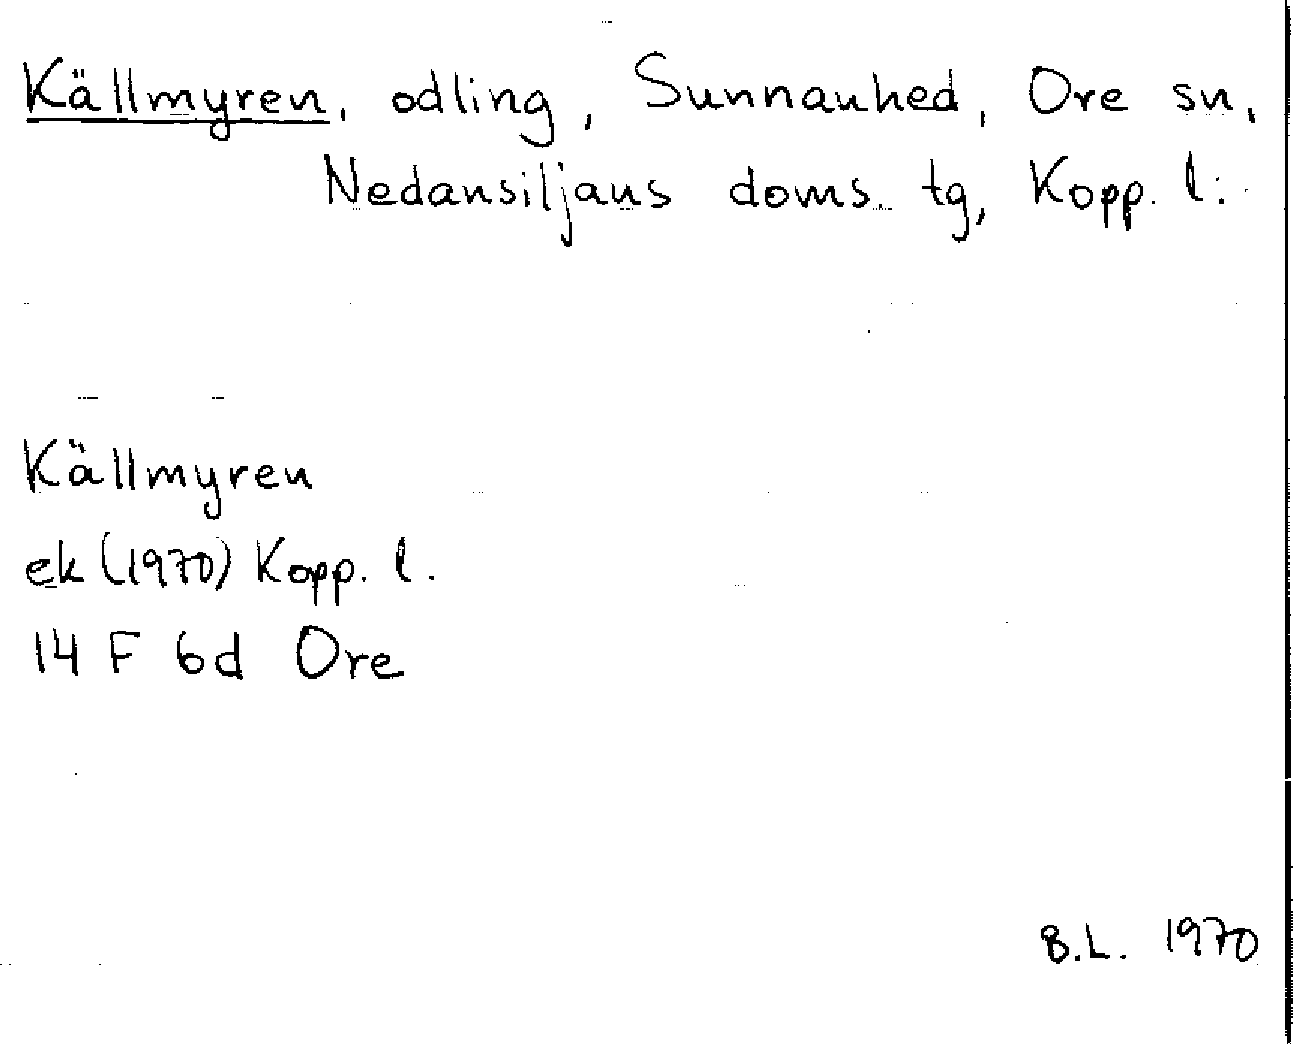 Källmyren, odling, Sunnanhed, Ore sn,
Nedansiljans doms. tg, Kopp. l.
Källmyren
ek (1970) Kopp. l.
14 F 6d Ore
B.L. 1970